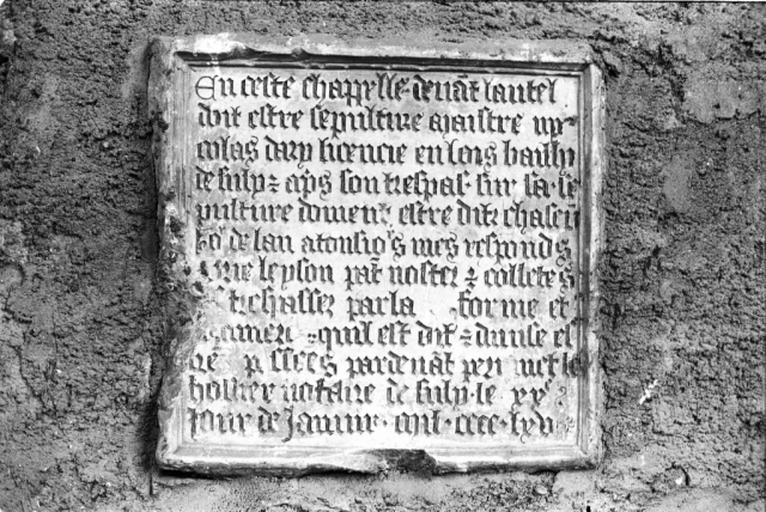 En ceste chappelle devāt lautel
doit estre sepulture maistre ny
colas darp licencie en lois bailly
de sulp ⁊ aps son trespas · sur sa se
pulture doivent estre dit chascu
de lan a tousio's mes responds
pat noster ⁊ collectes
chassez par la forme et
quil est dit ⁊ divise es
passees pardevāt
notaire de sulp · le xx
Jour de Janvier · mil · cccc · lxv